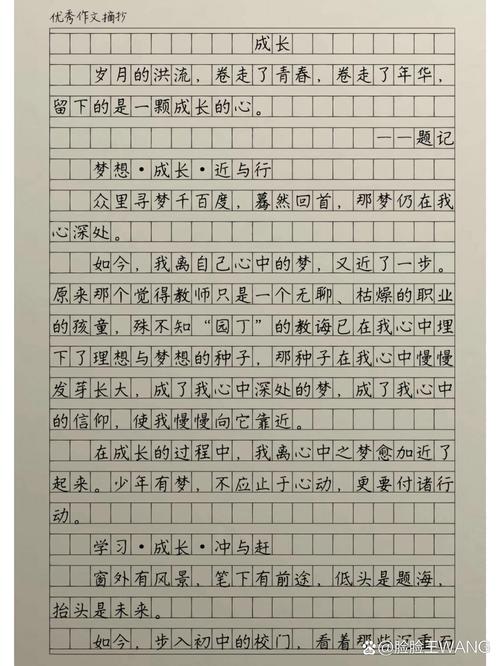 优秀作文摘抄
成长
岁月的洪流，卷走了青春，卷走了年华，
留下的是一颗成长的心。
——题记
梦想·成长·近与行
众里寻梦千百度，蓦然回首，那梦仍在我
心深处。
如今，我离自己心中的梦，又近了一步。
原来那个觉得教师只是一个无聊、枯燥的职业
的孩童，殊不知“园丁”的教诲已在我心中埋
下了理想与梦想的种子，那种子在我心中慢慢
发芽长大，成了我心中深处的梦，成了我心中
的信仰，使我慢慢向它靠近。
在成长的过程中，我离心中之梦愈加近了
起来。少年有梦，不应止于心动，更要付诸行
动。
学习·成长·冲与赶
窗外有风景，笔下有前途，低头是题海，
抬头是未来。
如今，步入初中的校门，看着那些
@脸脸王WANG